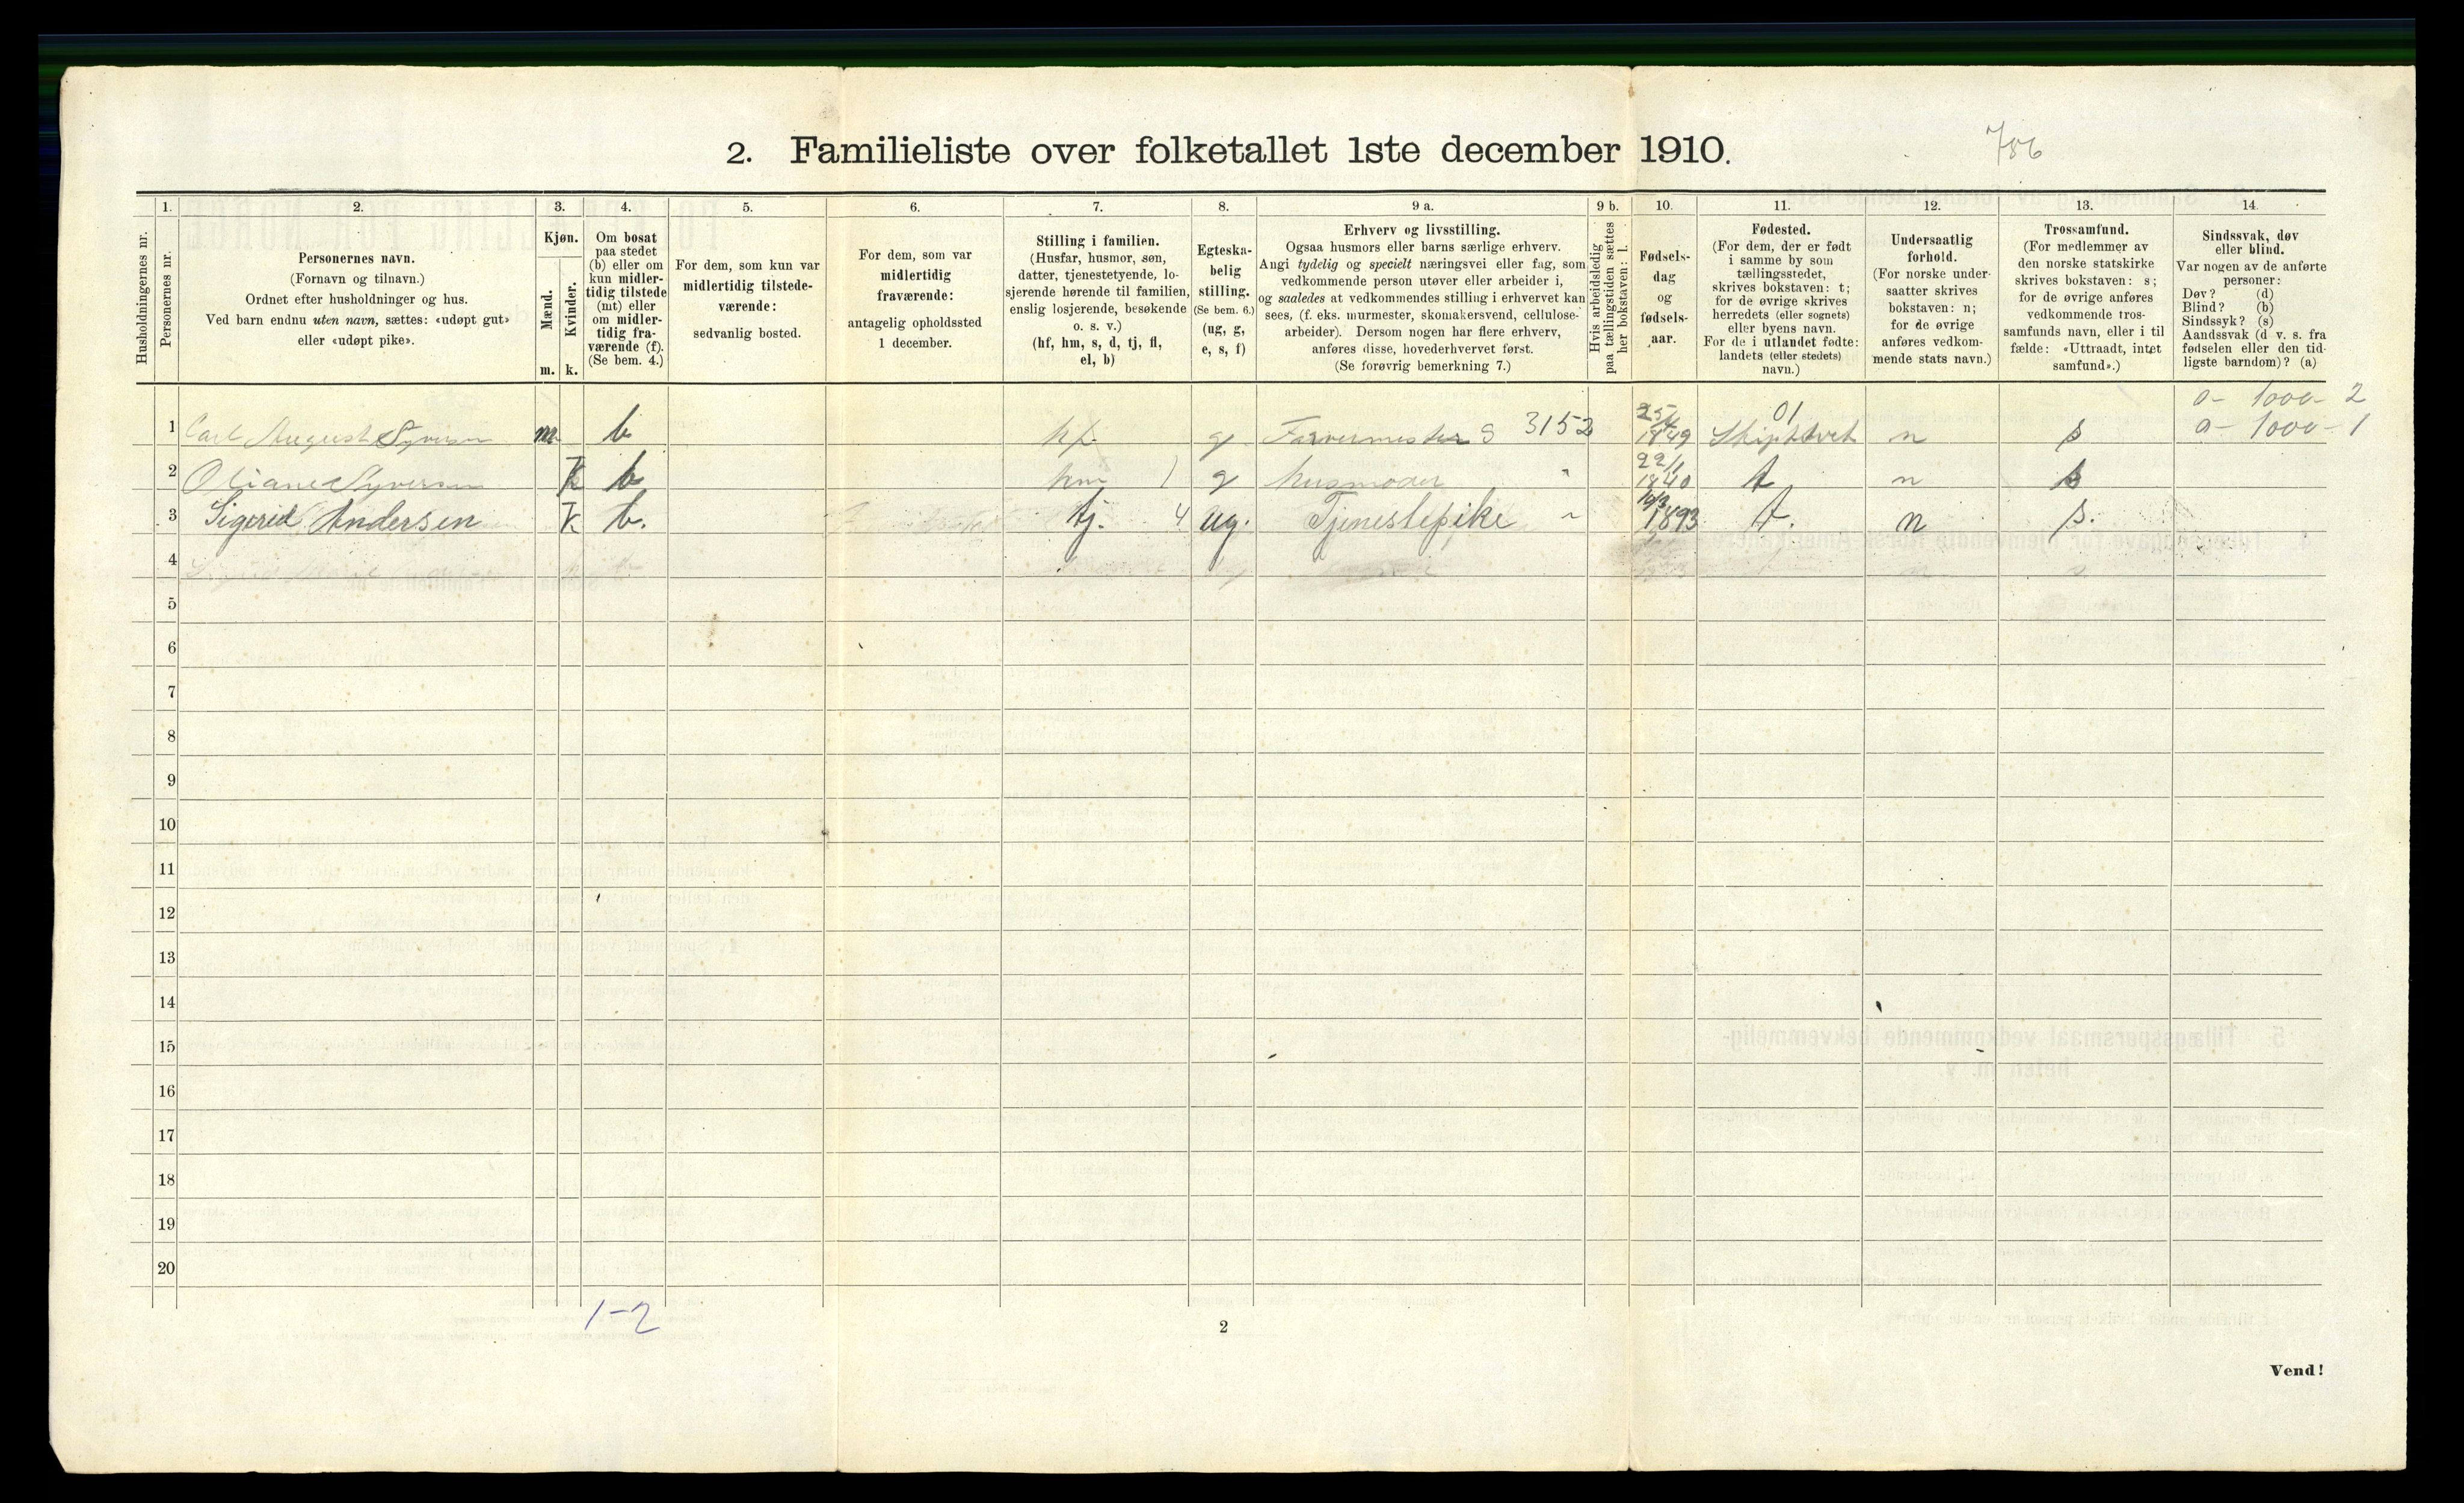 2. Familieliste over folketallet 1ste december 1910.
786
Husholdningernes nr.
1.
Personernes nr.
2.
Personernes navn.
(Fornavn og tilnavn.)
Ordnet efter husholdninger og hus.
Ved barn endnu uten navn, sættes: «udøpt gut»
eller «udøpt pike».
3.
Kjøn.
Mænd.
Kvinder.
m. k.
4.
Om bosat
paa stedet
(b) eller om
kun midler-
tidig tilstede
(mt) eller
om midler-
tidig fra-
værende (f).
(Se bem. 4.)
5.
For dem, som kun var
midlertidig tilstede-
værende:
sedvanlig bosted.
6.
For dem, som var
midlertidig
fraværende:
antagelig opholdssted
1 december.
7.
Stilling i familien.
(Husfar, husmor, søn,
datter, tjenestetyende, lo-
sjerende hørende til familien,
enslig losjerende, besøkende
o. s. v.)
(hf, hm, s, d, tj, fl,
el, b)
8.
Egteska-
belig
stilling.
(Se bem. 6.)
(ug, g,
e, s, f)
9 a.
Erhverv og livsstilling.
Ogsaa husmors eller barns særlige erhverv.
Angi tydelig og specielt næringsvei eller fag, som
vedkommende person utøver eller arbeider i,
og saaledes at vedkommendes stilling i erhvervet kan
sees, (f. eks. murmester, skomakersvend, cellulose-
arbeider). Dersom nogen har flere erhverv,
anføres disse, hovederhvervet først.
(Se forøvrig bemerkning 7.)
9 b.
Hvis arbeidsledig
paa tællingstiden sættes
her bokstaven: l.
10.
Fødsels-
dag
og
fødsels-
aar.
11.
Fødested.
(For dem, der er født
i samme by som
tællingsstedet,
skrives bokstaven: t;
for de øvrige skrives
herredets (eller sognets)
eller byens navn.
For de i utlandet fødte:
landets (eller stedets)
navn.)
12.
Undersaatlig
forhold.
(For norske under-
saatter skrives
bokstaven: n;
for de øvrige
anføres vedkom-
mende stats navn.)
13.
Trossamfund.
(For medlemmer av
den norske statskirke
skrives bokstaven: s;
for de øvrige anføres
vedkommende tros-
samfunds navn, eller i til
fælde: «Uttraadt, intet
samfund».)
14.
Sindssvak, døv
eller blind.
Var nogen av de anførte
personer:
Døv? (d)
Blind? (b)
Sindssyk? (s)
Aandssvak (d v. s. fra
fødselen eller den tid-
ligste barndom)? (a)
0- 1000- 2
1 Carl August Syversen m b hf g Farvermester S 3152 25/4 1849 01 Skiptvet n s 0- 1000- 1
2 Oliane Syversen k b hm 1 g husmoder " 22/1 1840 t n s
3 Sigrid Andersen k b. tj. 4 ug. Tjenestepike " 10/3 1893 t. n s.
4
5
6
7
8
9
10
11
12
13
14
15
16
17
18
19
20
1-2
2
Vend!